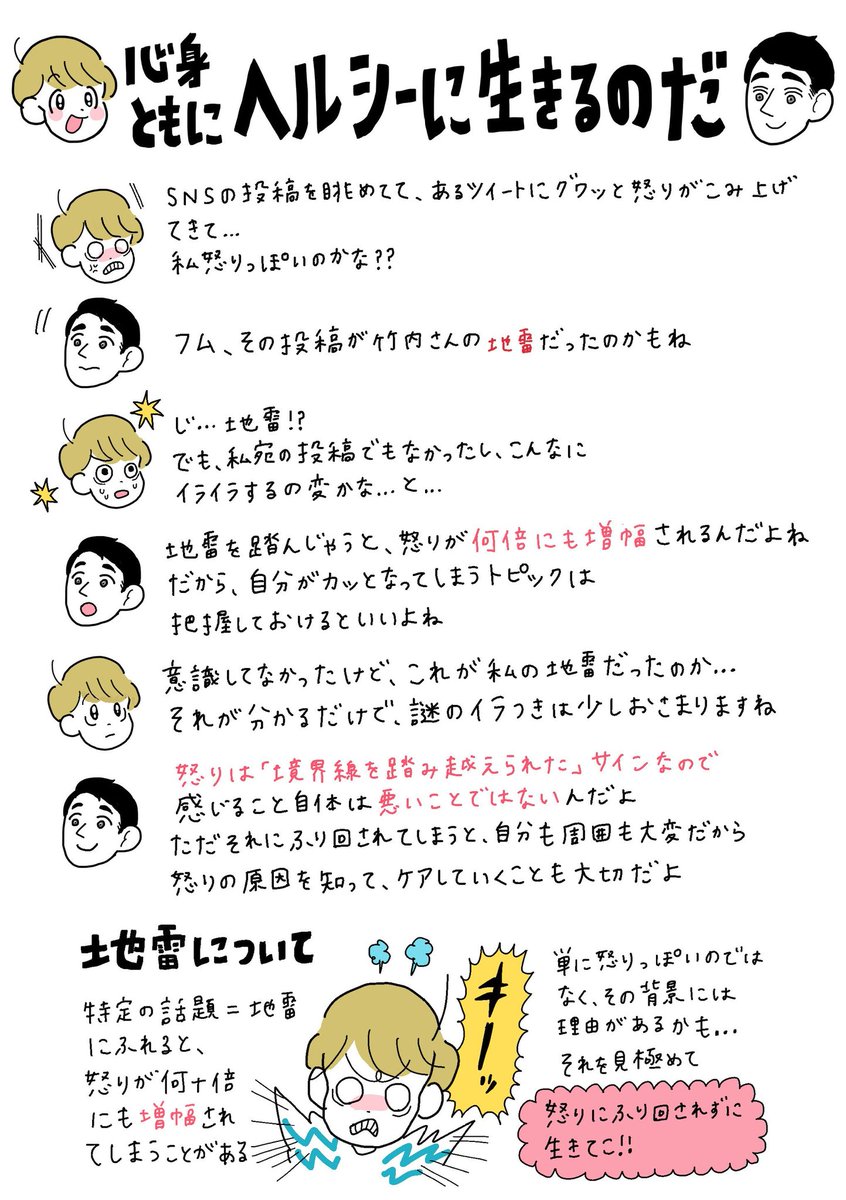 心身
ともに
ヘルシーに生きるのだ
SNSの投稿を眺めてて、あるツイートにグワッと怒りがこみ上げ
てきて…
私怒りっぽいのかな??
フム、その投稿が竹内さんの地雷だったのかもね
じ…地雷!?
でも、私宛の投稿でもなかったし、こんなに
イライラするの変かな…と…
地雷を踏んじゃうと、怒りが何倍にも増幅されるんだよね
だから、自分がカッとなってしまうトピックは
把握しておけるといいよね
意識してなかったけど、これが私の地雷だったのか…
それが分かるだけで、謎のイラつきは少しおさまりますね
怒りは「境界線を踏み越えられた」サインなので
感じること自体は悪いことではないんだよ
ただそれにふり回されてしまうと、自分も周囲も大変だから
怒りの原因を知って、ケアしていくことも大切だよ
地雷について
特定の話題=地雷
にふれると、
怒りが何十倍
にも増幅され
てしまうことがある
キーッ
単に怒りっぽいのでは
なく、その背景には
理由があるかも…
それを見極めて
怒りにふり回されずに
生きてこ!!